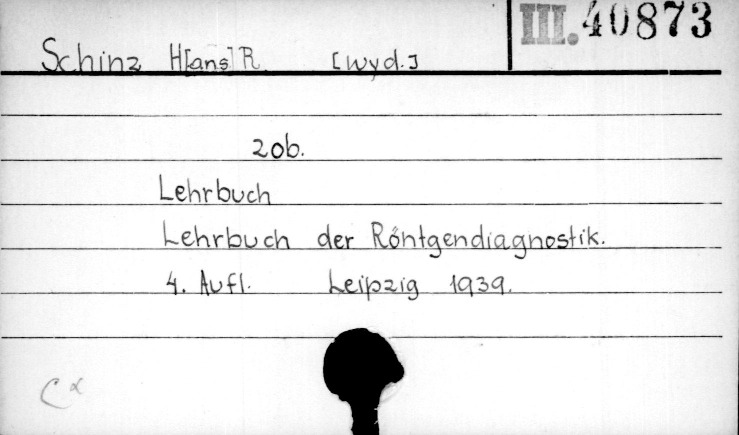 III. 40873
Schinz H[ans] R. [wyd.]
zob.
Lehrbuch
Lehrbuch der Röntgendiagnostik.
4. Aufl. Leipzig 1939.